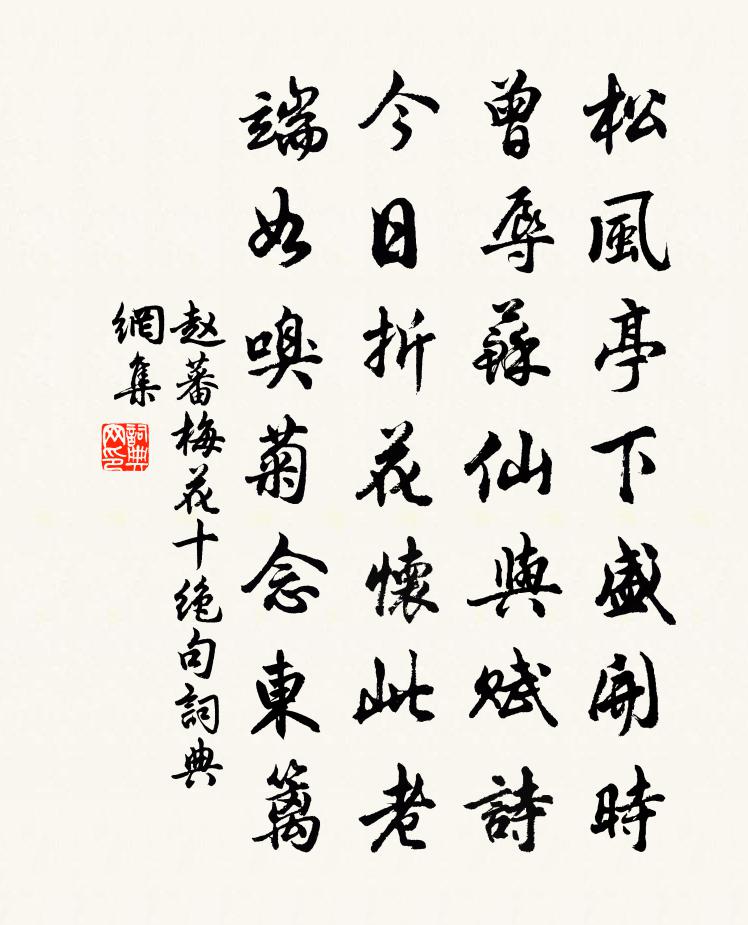 松風亭下盛開時
曾辱蘇仙與賦詩
今日折花懷此老
端如嗅菊念東籬
赵蕃梅花十绝句詞典
網集
詞典
网印